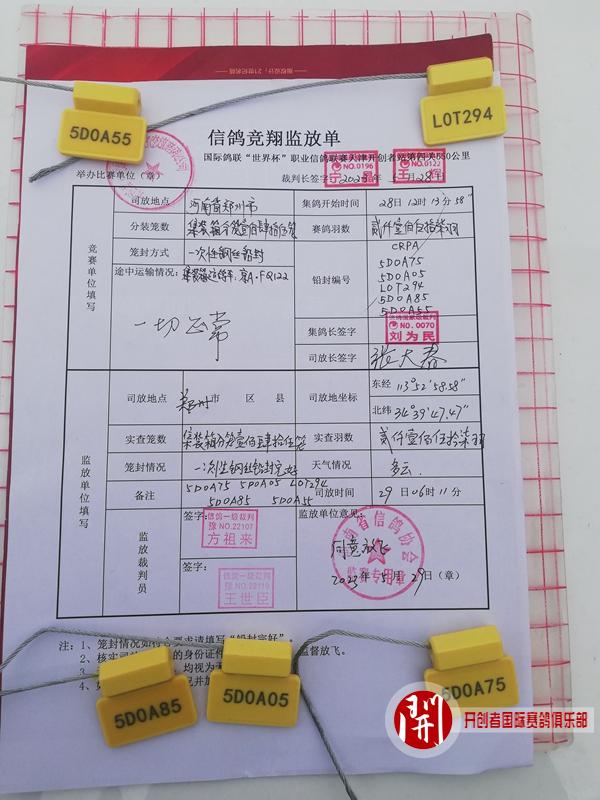 5D0A55
LOT294
信鸽竞翔监放单
国际鸽联“世界杯”职业信鸽联赛天津开创者站第四关550公里
举办比赛单位(章)
裁判长签字:
NO.0196
NO.0122
竞赛单位填写
司放地点
河南省郑州市
集鸽开始时间
28日12时13分58"
分装笼数
赛鸽羽数
笼封方式
一次性钢丝铅封
铅封编号
CRPA
5D0A75
5D0A05
LOT294
5D0A85
5D0A55
途中运输情况:
一切正常
集鸽长签字
NO.0070
刘为民
司放长签字
张大春
监放单位填写
司放地点
郑州市 区 县
司放地坐标
东经 113°52'58.58"
北纬 34°39'47.47"
实查笼数
集装箱分笼壹佰肆拾伍笼
实查羽数
贰仟壹佰伍拾柒羽
笼封情况
一次性钢丝铅封完好
天气情况
多云
备注
5D0A75 5D0A05 LOT294
5D0A85 5D0A55
司放时间
29日06时11分
监放裁判员
签字:
信鸽一级裁判
豫NO.22107
方祖来
签字:
信鸽一级裁判
豫NO.22119
王世臣
监放单位意见:
同意放飞
南省信鸽协会
监赛专用章
2023年5月29日(章)
注:1、笼封情况如
2、核实司
的身份证件
监督放飞。
均视为
5D0A85
5D0A05
5D0A75
開
开创者国际赛鸽俱乐部